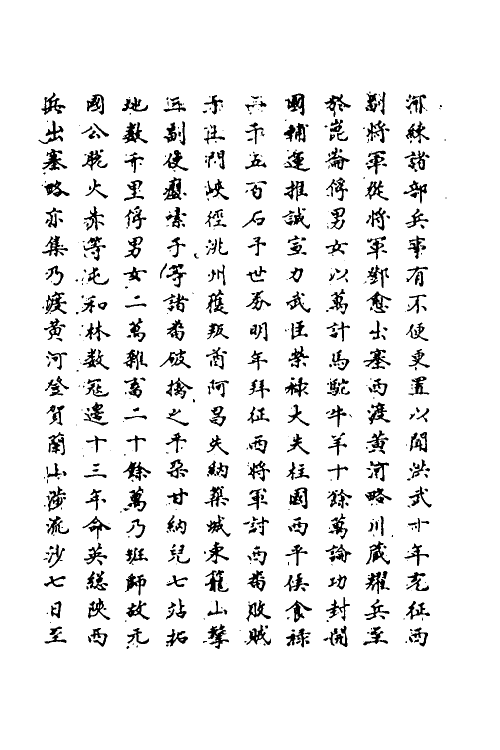 河練諸部兵事有不便更置以聞洪武十年充征西
副將軍從將軍鄧愈出塞西渡黃河略川藏耀兵至
於崑崙俘男女以萬計馬駝牛羊十餘萬論功封開
國輔運推誠宣力武臣榮祿大夫柱國西平侯食祿
二千五百石予世券明年拜征西將軍討西番敗賊
于土門峽徑洮州獲叛酋阿昌失納築城東籠山擊
三副使癭嗉子等諸番破擒之平朶甘納兒七站拓
地數千里俘男女二萬雜畜二十餘萬乃班師故元
國公脫火赤等屯和林數寇邊十三年命英總陝西
兵出塞略亦集乃渡黃河登賀蘭山涉流沙七日至